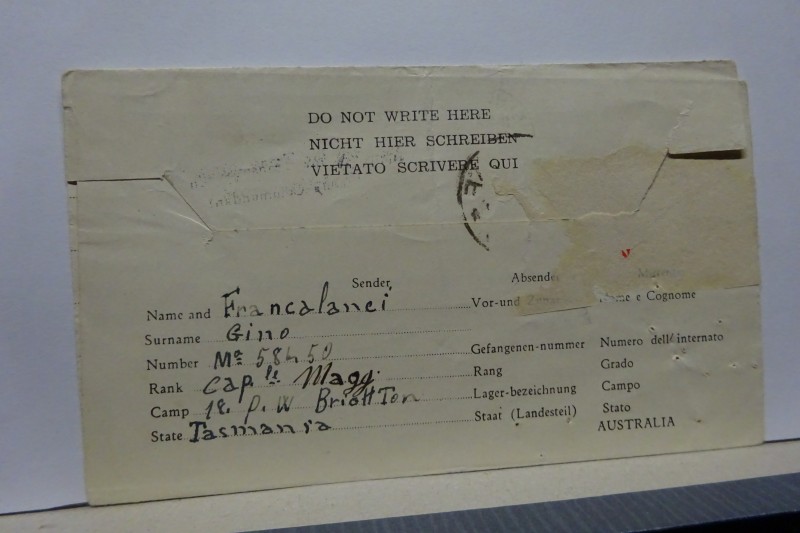 DO NOT WRITE HERE
NICHT HIER SCHREIBEN
VIETATO SCRIVERE QUI
Sender Absender
Name and Francalanci Vor-und Nome e Cognome
Surname Gino
Number Mº 58450 Gefangenen-nummer Numero dell'internato
Rank Cap.le Magg. Rang Grado
Camp 18. P.W BriottTon Lager-bezeichnung Campo
State Tasmania Staat (Landesteil) Stato
AUSTRALIA